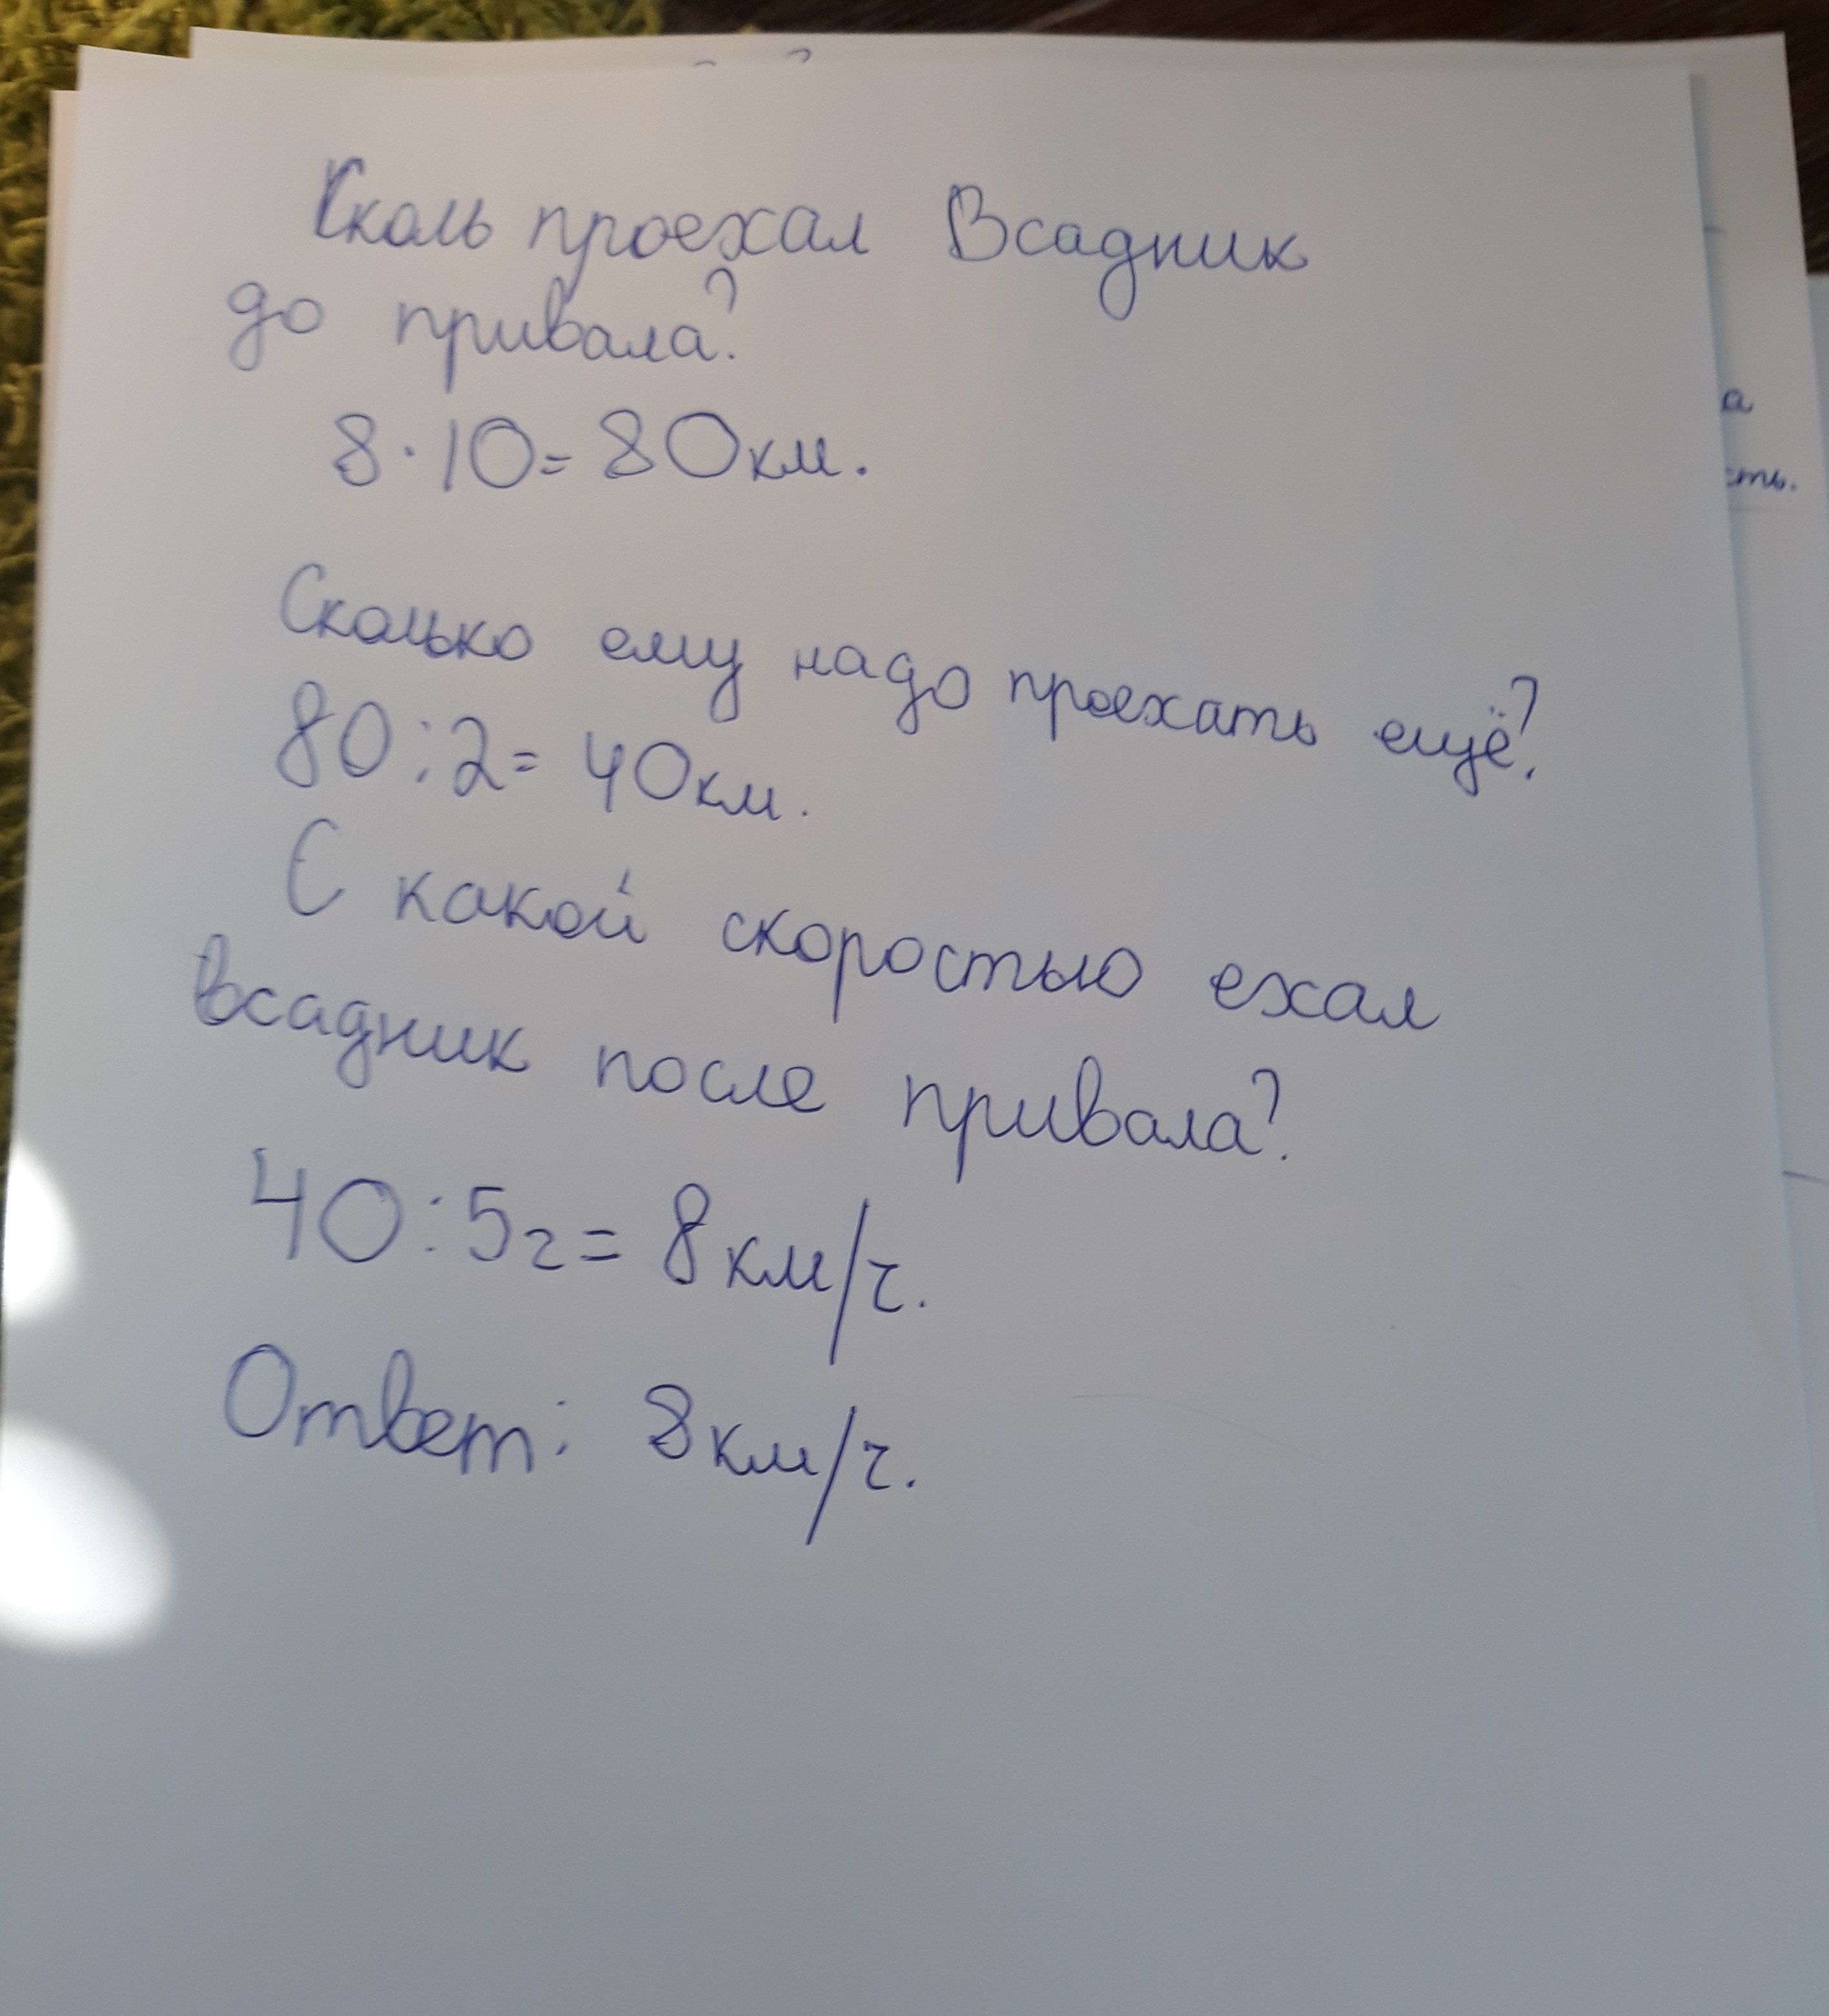 Сколь проехал Всадник
до привала?
8·10=80км.
Сколько ему надо проехать ещё?
80:2=40км.
С какой скоростью ехал
всадник после привала?
40:5ч=8км/ч.
Ответ: 8км/ч.
а
сть.